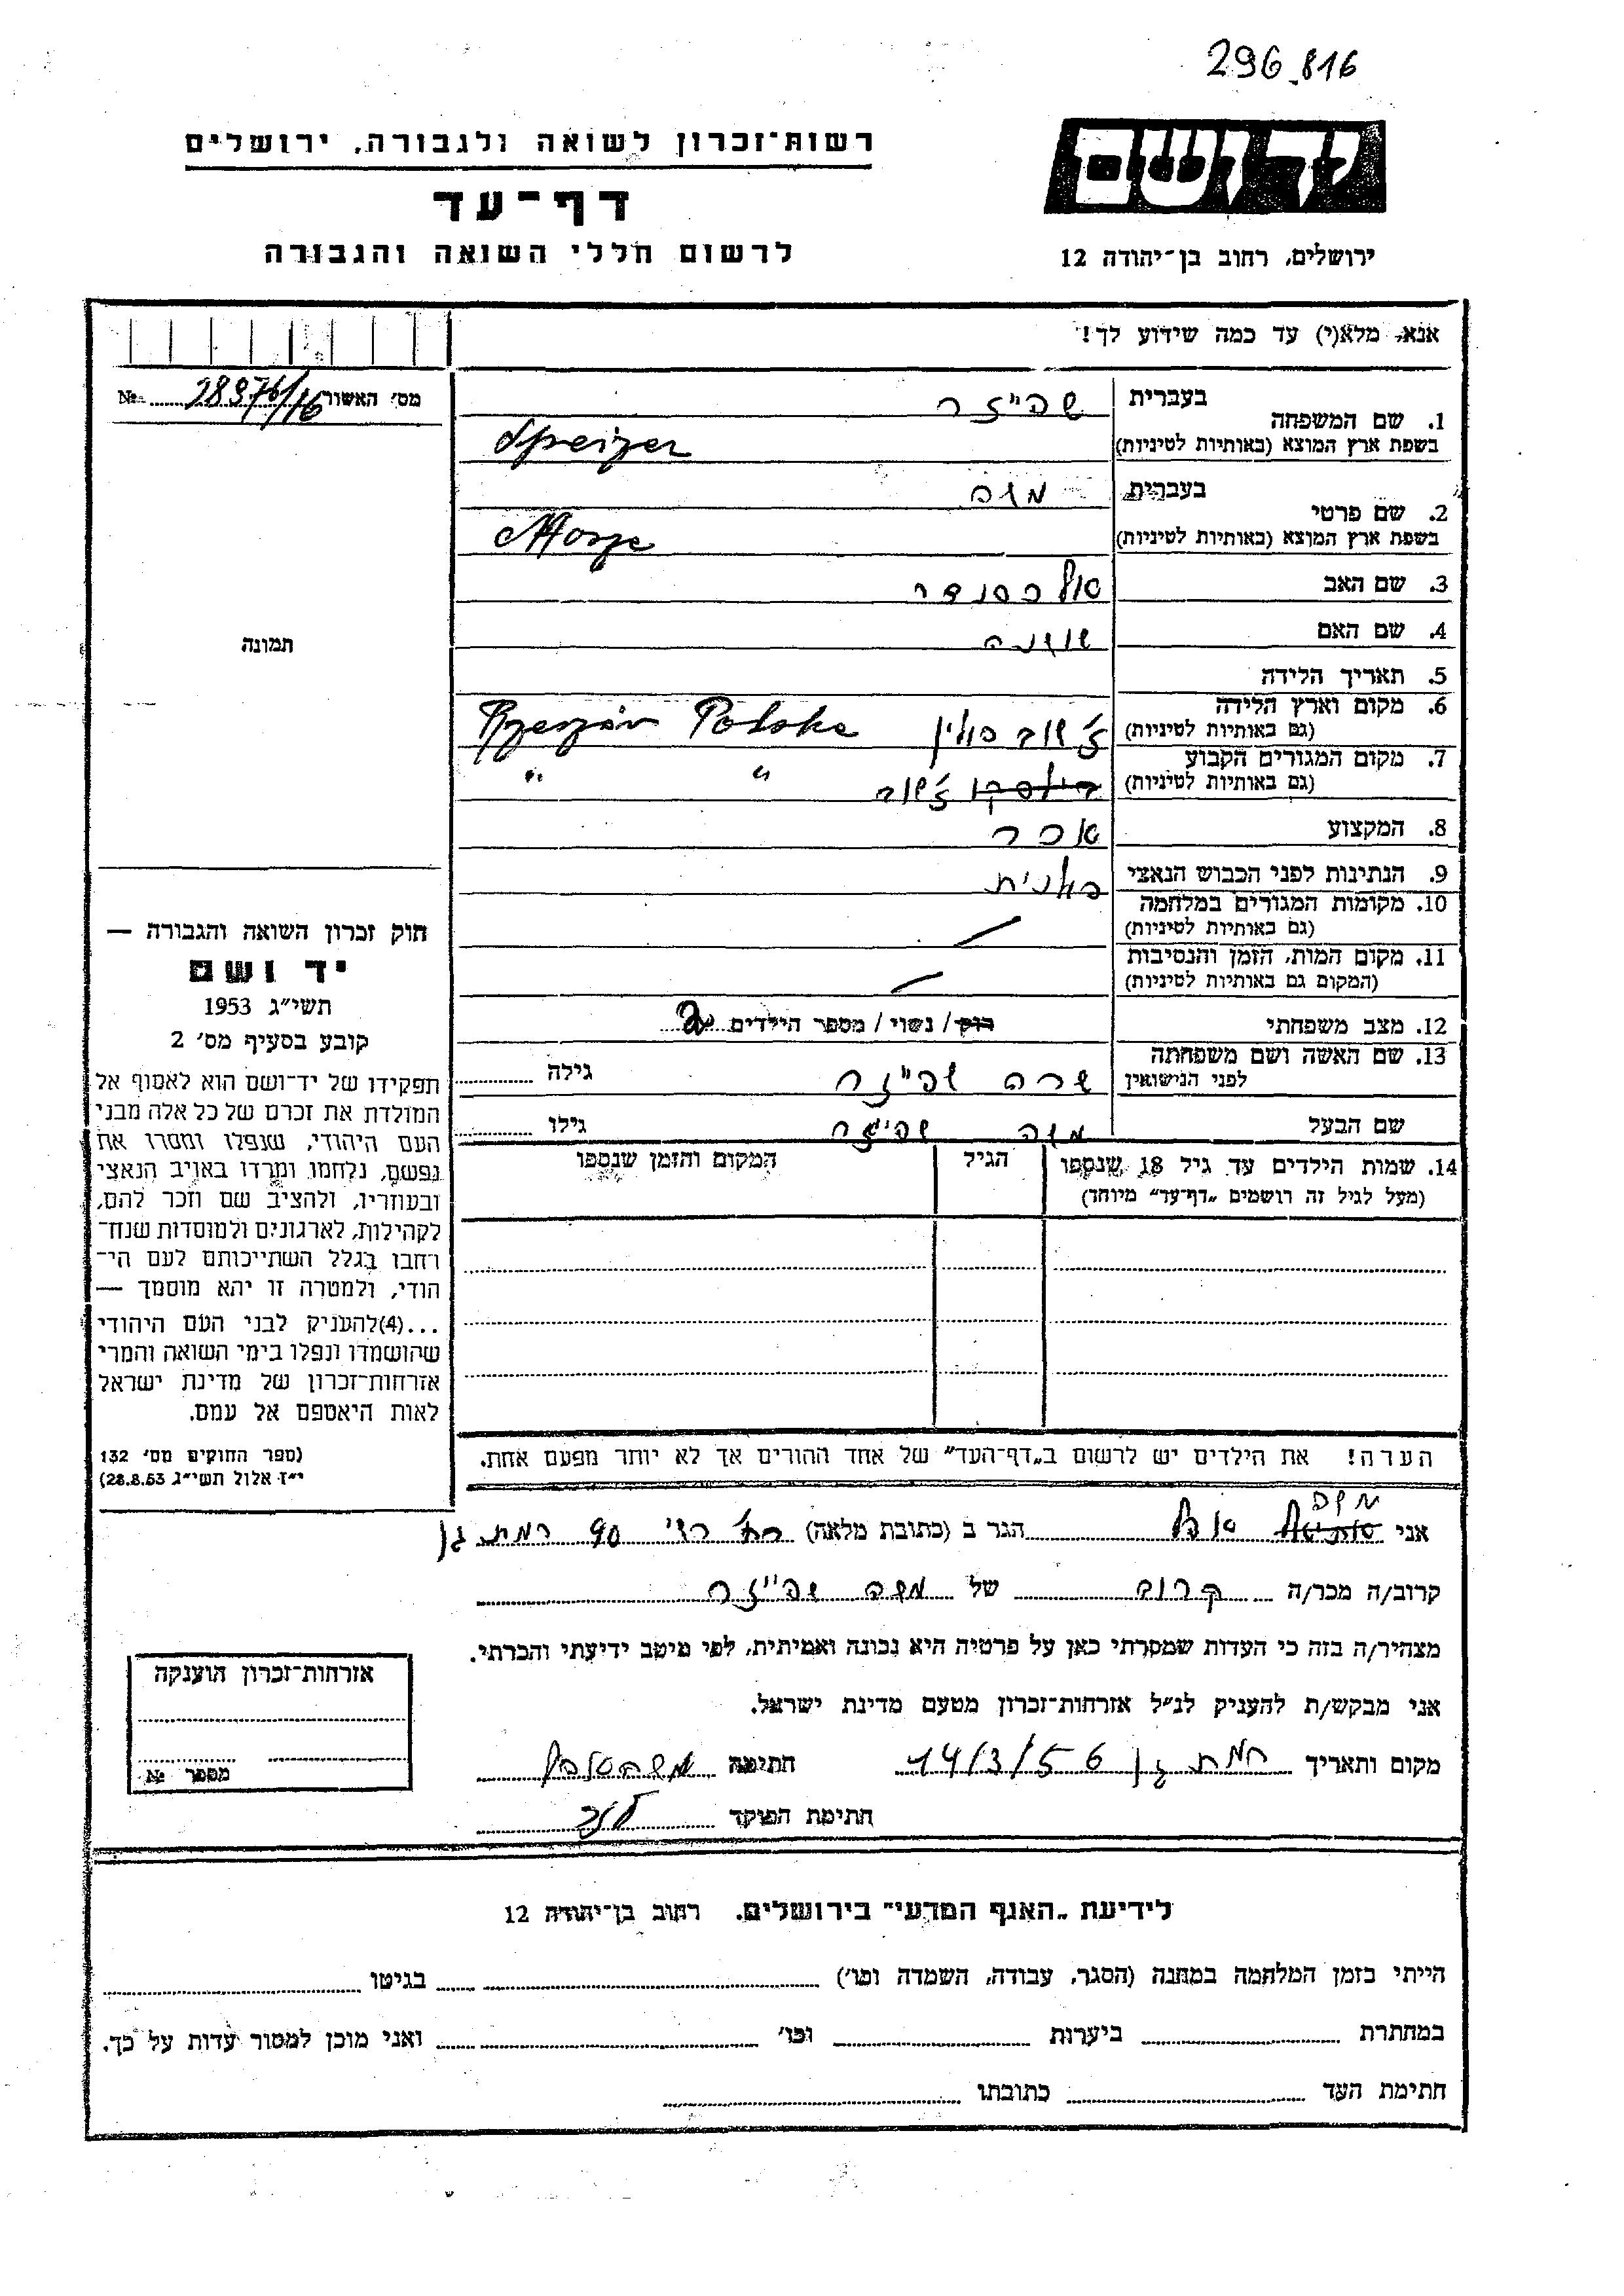 296816
רשות־זכרון לשואה ולגבורה, ירושלים
דף־עד
לרשום חללי השואה והגבורה
יד ושם
ירושלים, רחוב בן־יהודה 12
אנא, מלא(י) עד כמה שידוע לך!
מס׳ האשור № 28976/16
תמונה
1. שם המשפחה בעברית שפייזר
בשפת ארץ המוצא (באותיות לטיניות) Speizer
2. שם פרטי בעברית משה
בשפת ארץ המוצא (באותיות לטיניות) Mosze
3. שם האב אלכסנדר
4. שם האם שושנה
5. תאריך הלידה
6. מקום וארץ הלידה
(גם באותיות לטיניות) ז׳שוב פולין Rzeszów Polska
7. מקום המגורים הקבוע
(גם באותיות לטיניות) ז׳שוב " "
8. המקצוע אכר
9. הנתינות לפני הכבוש הנאצי פולנית
10. מקומות המגורים במלחמה
(גם באותיות לטיניות) /
11. מקום המות, הזמן והנסיבות
(המקום גם באותיות לטיניות) /
12. מצב משפחתי רוק / נשוי / מספר הילדים 2
13. שם האשה ושם משפחתה
לפני הנישואין שרה שפייזר גילה
שם הבעל משה שפייזר גילו
14. שמות הילדים עד גיל 18 שנספו הגיל המקום והזמן שנספו
(מעל לגיל זה רושמים „דף־עד” מיוחד)
הערה! את הילדים יש לרשום ב„דף־העד” של אחד ההורים אך לא יותר מפעם אחת.
חוק זכרון השואה והגבורה —
יד ושם
תשי״ג 1953
קובע בסעיף מס׳ 2
תפקידו של יד־ושם הוא לאסוף אל
המולדת את זכרם של כל אלה מבני
העם היהודי, שנפלו ומסרו את
נפשם, נלחמו ומרדו באויב הנאצי
ובעוזריו, ולהציב שם וזכר להם,
לקהילות, לארגונים ולמוסדות שנח־
רחבו בגלל השתייכותם לעם הי־
הודי, ולמטרה זו יהא מוסמך —
...(4)להעניק לבני העם היהודי
שהושמדו ונפלו בימי השואה והמרי
אזרחות־זכרון של מדינת ישראל
לאות היאספם אל עמם.
(ספר החוקים מס׳ 132
י״ז אלול תשי״ג 28.8.53)
אני משה הגר ב (כתובת מלאה) 90 רמת גן
קרוב/ה מכר/ה קרוב של משה שפייזר
מצהיר/ה בזה כי העדות שמסרתי כאן על פרטיה היא נכונה ואמיתית, לפי מיטב ידיעתי והכרתי.
אני מבקש/ת להעניק לנ״ל אזרחות־זכרון מטעם מדינת ישראל.
מקום ותאריך רמת גן 14/3/56 חתימה משה
חתימת הפוקד
אזרחות־זכרון הוענקה
מספר №
לידיעת „האגף המדעי” בירושלים. רחוב בן־יהודה 12
הייתי בזמן המלחמה במחנה (הסגר, עבודה, השמדה וכו׳) בגיטו
במחתרת ביערות וכו׳ ואני מוכן למסור עדות על כך.
חתימת העד כתובתו